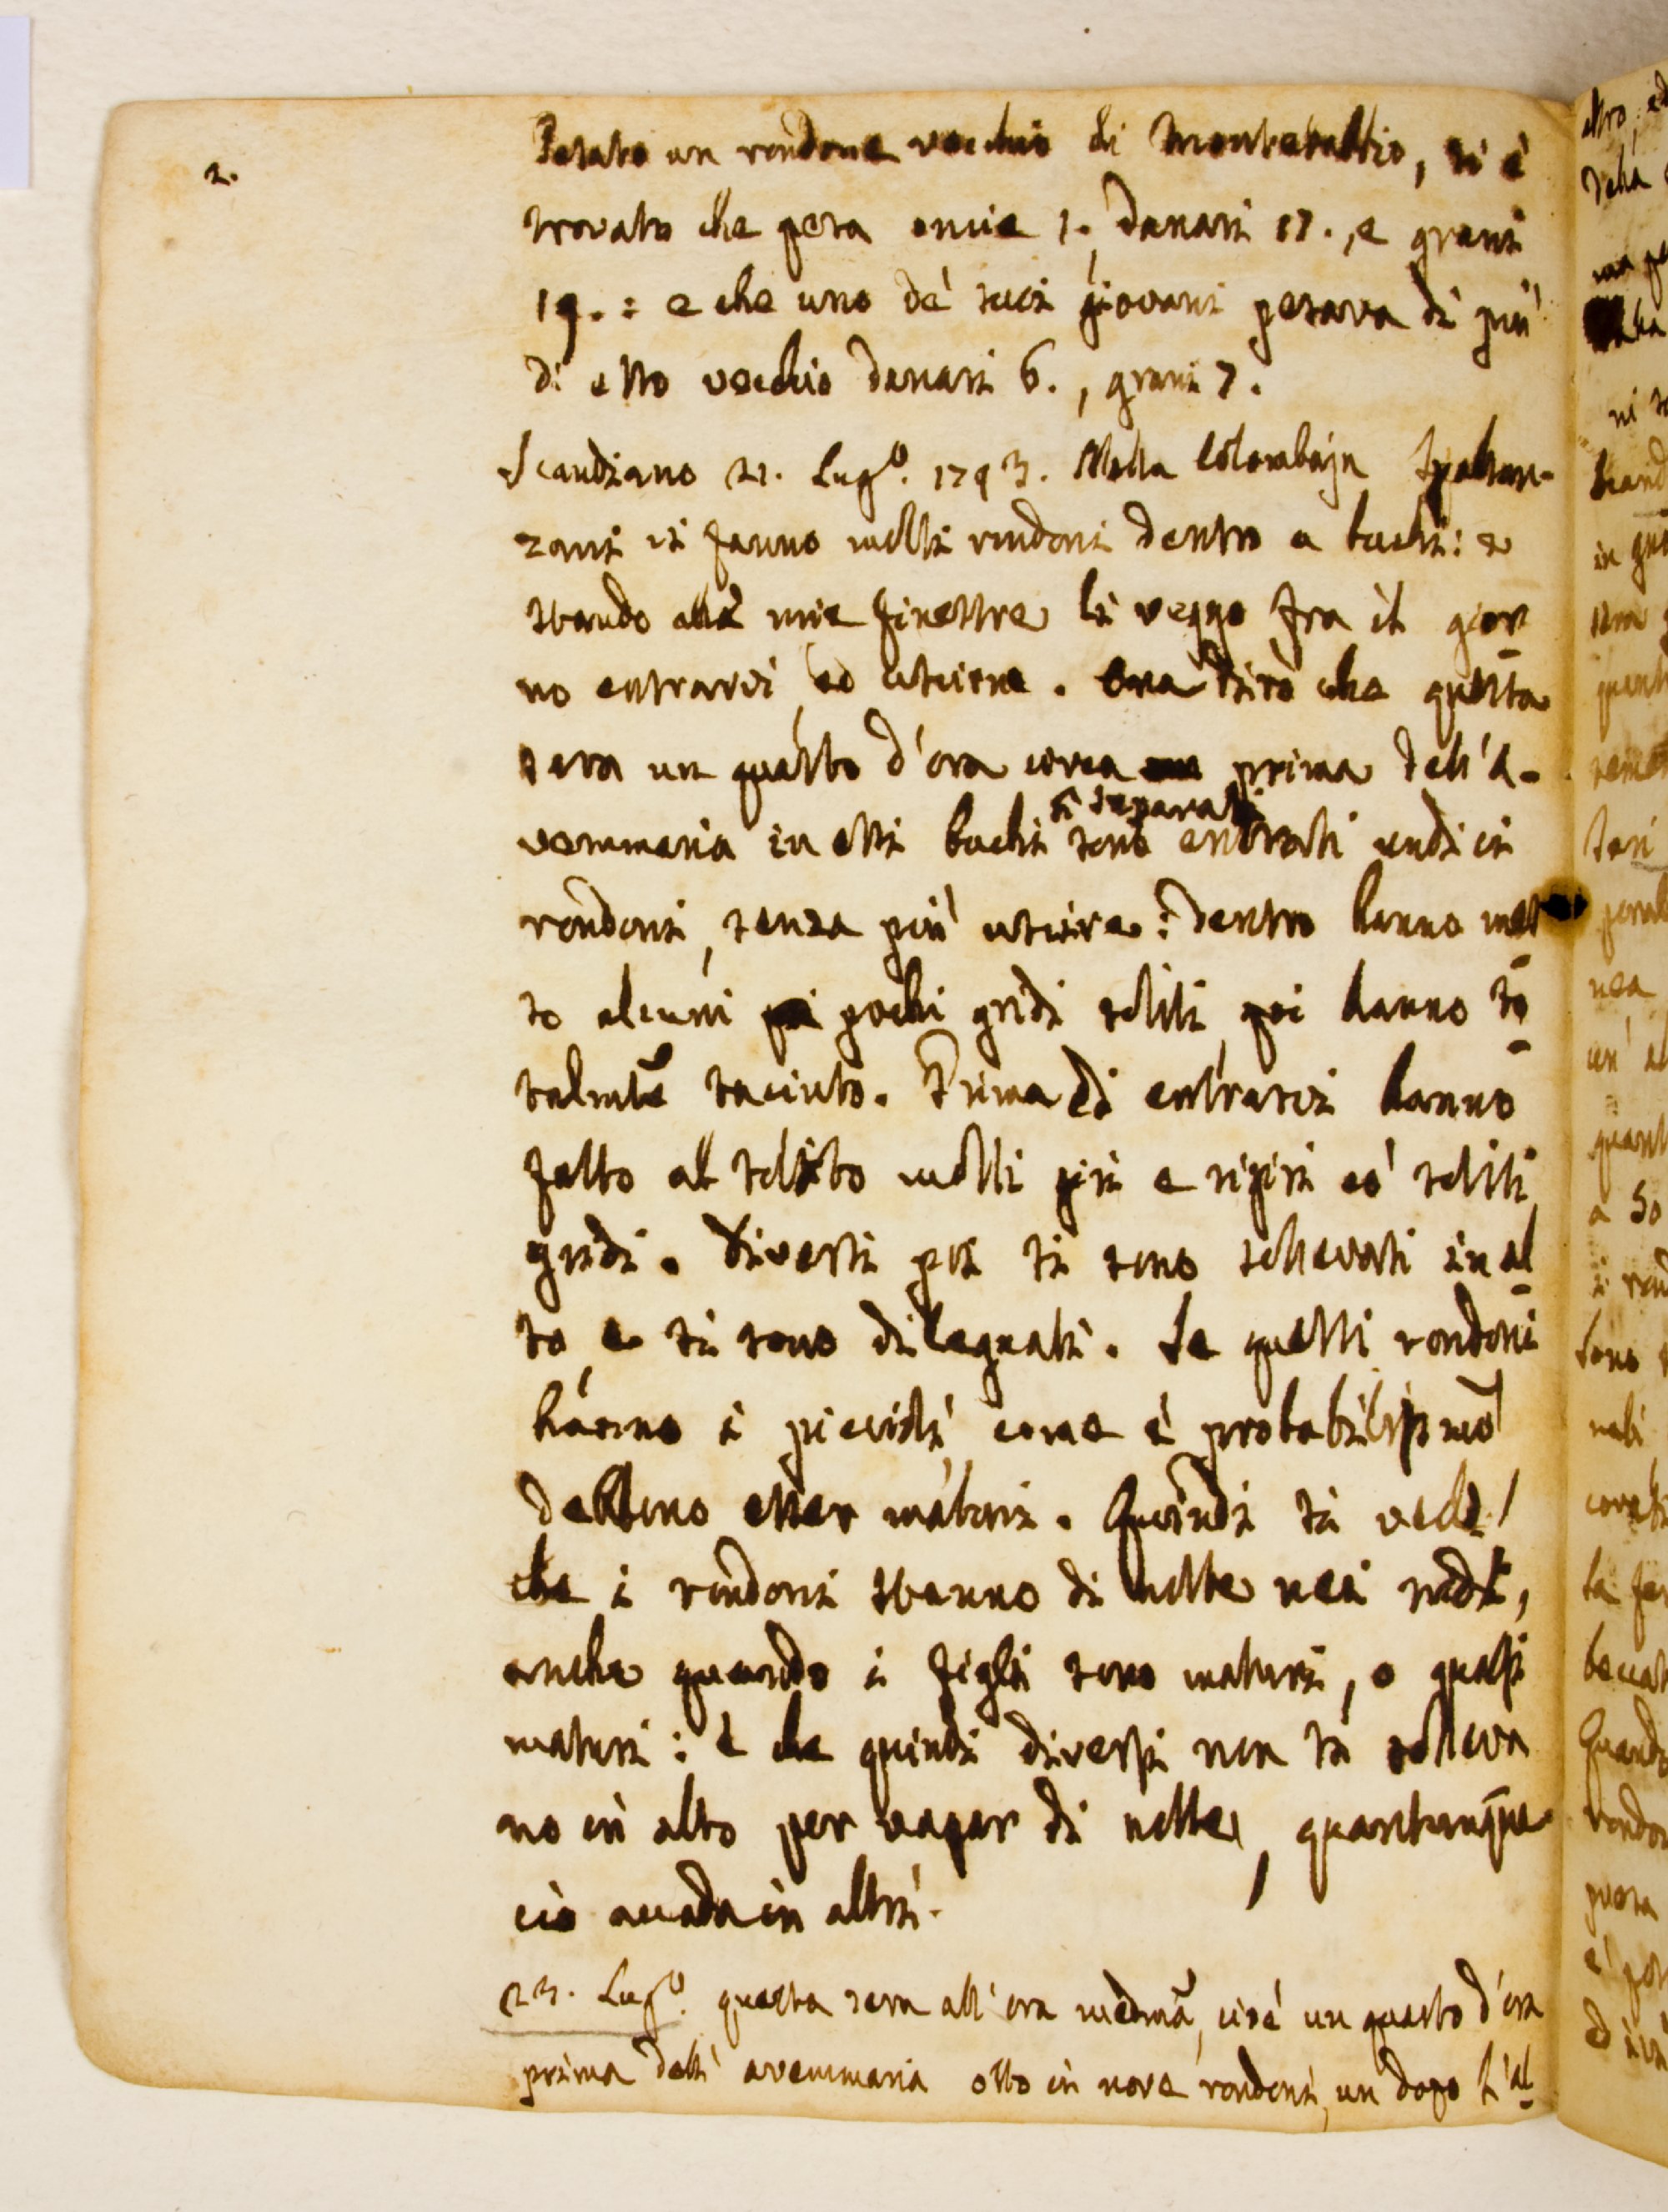 2.
Pesato un rondone vecchio di Montebabbio, si è
trovato che pesa oncie 1., danari 17., e grani
19. : e che uno de' suoi giovani pesava di più
di esso vecchio danari 6., grani 7.
Scandiano 21. Lugº. 1793. Nella Colombaja Spallan-
zani vi fanno molti rondoni dentro a buchi: e
stando alle mie finestre li veggo fra il gior
no entrarvi, ed uscirne. Ora dirò che questa
sera un quarto d'ora circa prima dell'A-
si separati
vemmaria in essi buchi sono entrati undici
rondoni, senza più uscire: dentro hanno mes
so alcuni pochi gridi soliti, poi hanno to
talmte taciuto. Prima di entrarci hanno
fatto al solito molti giri e rigiri co' soliti
gridi. Diversi poi si sono sollevati in al
to, e si sono dileguati. Se questi rondoni
hanno i piccioli, come è probabilissmo
debbono esser maturi. Quindi si vede
che i rondoni stanno di notte nei nidi,
anche quando i figli sono maturi, o quasi
maturi: e che quindi diversi non si solleva
no in alto per vagar di notte, quantunque
ciò accada in altri.
23. Lugº. questa sera all'ora medmã, cioè un quarto d'ora
prima dell'avemmaria otto in nove rondoni, un dopo l'al